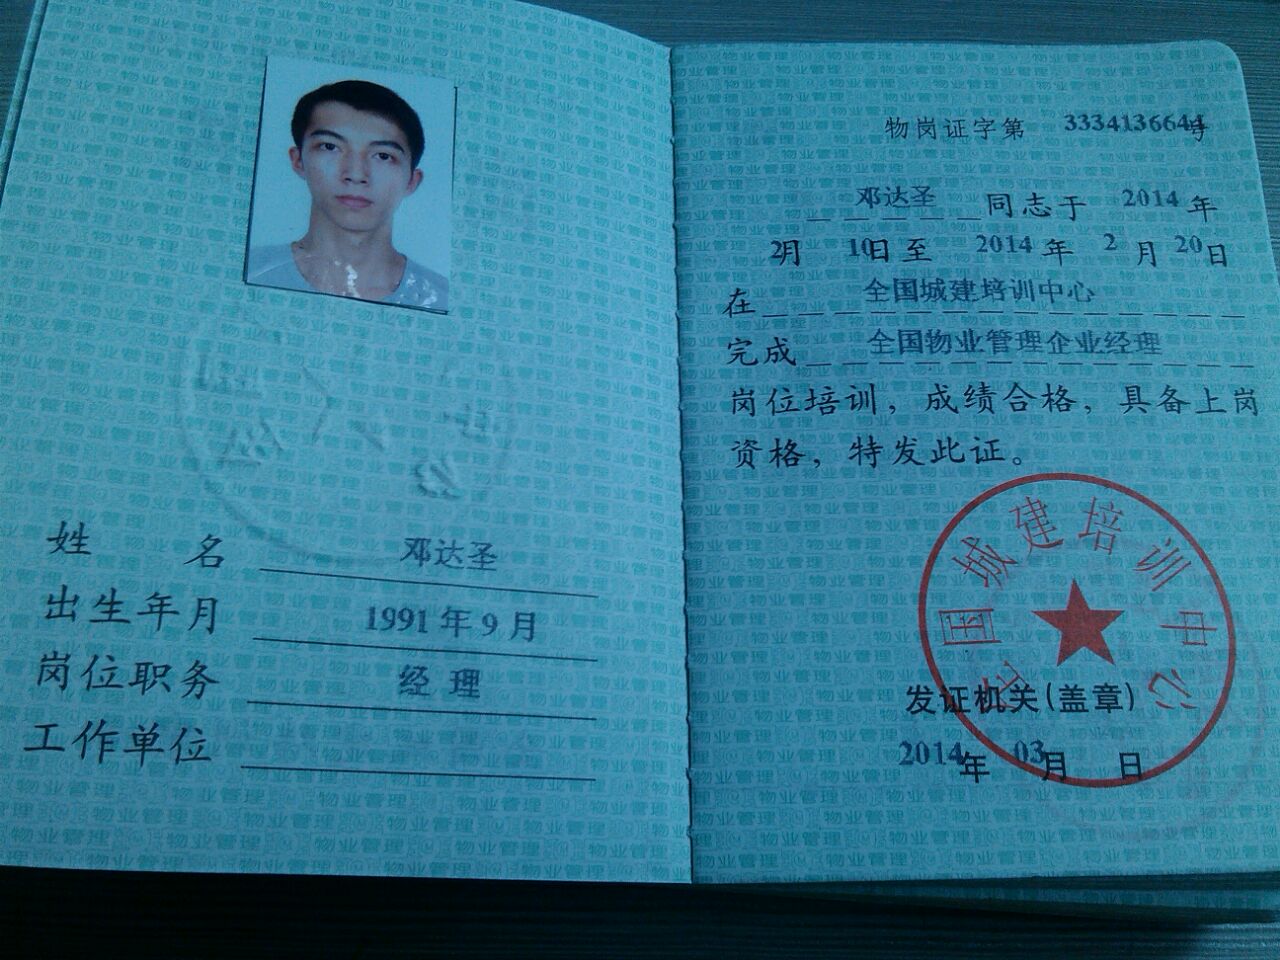 姓 名 邓达圣
出生年月 1991年9月
岗位职务 经理
工作单位
物岗证字第 3334136644号
邓达圣同志于2014年
2月10日至2014年2月20日
在全国城建培训中心
完成全国物业管理企业经理
岗位培训，成绩合格，具备上岗
资格，特发此证。
全国城建培训中心
发证机关(盖章)
2014年03月 日